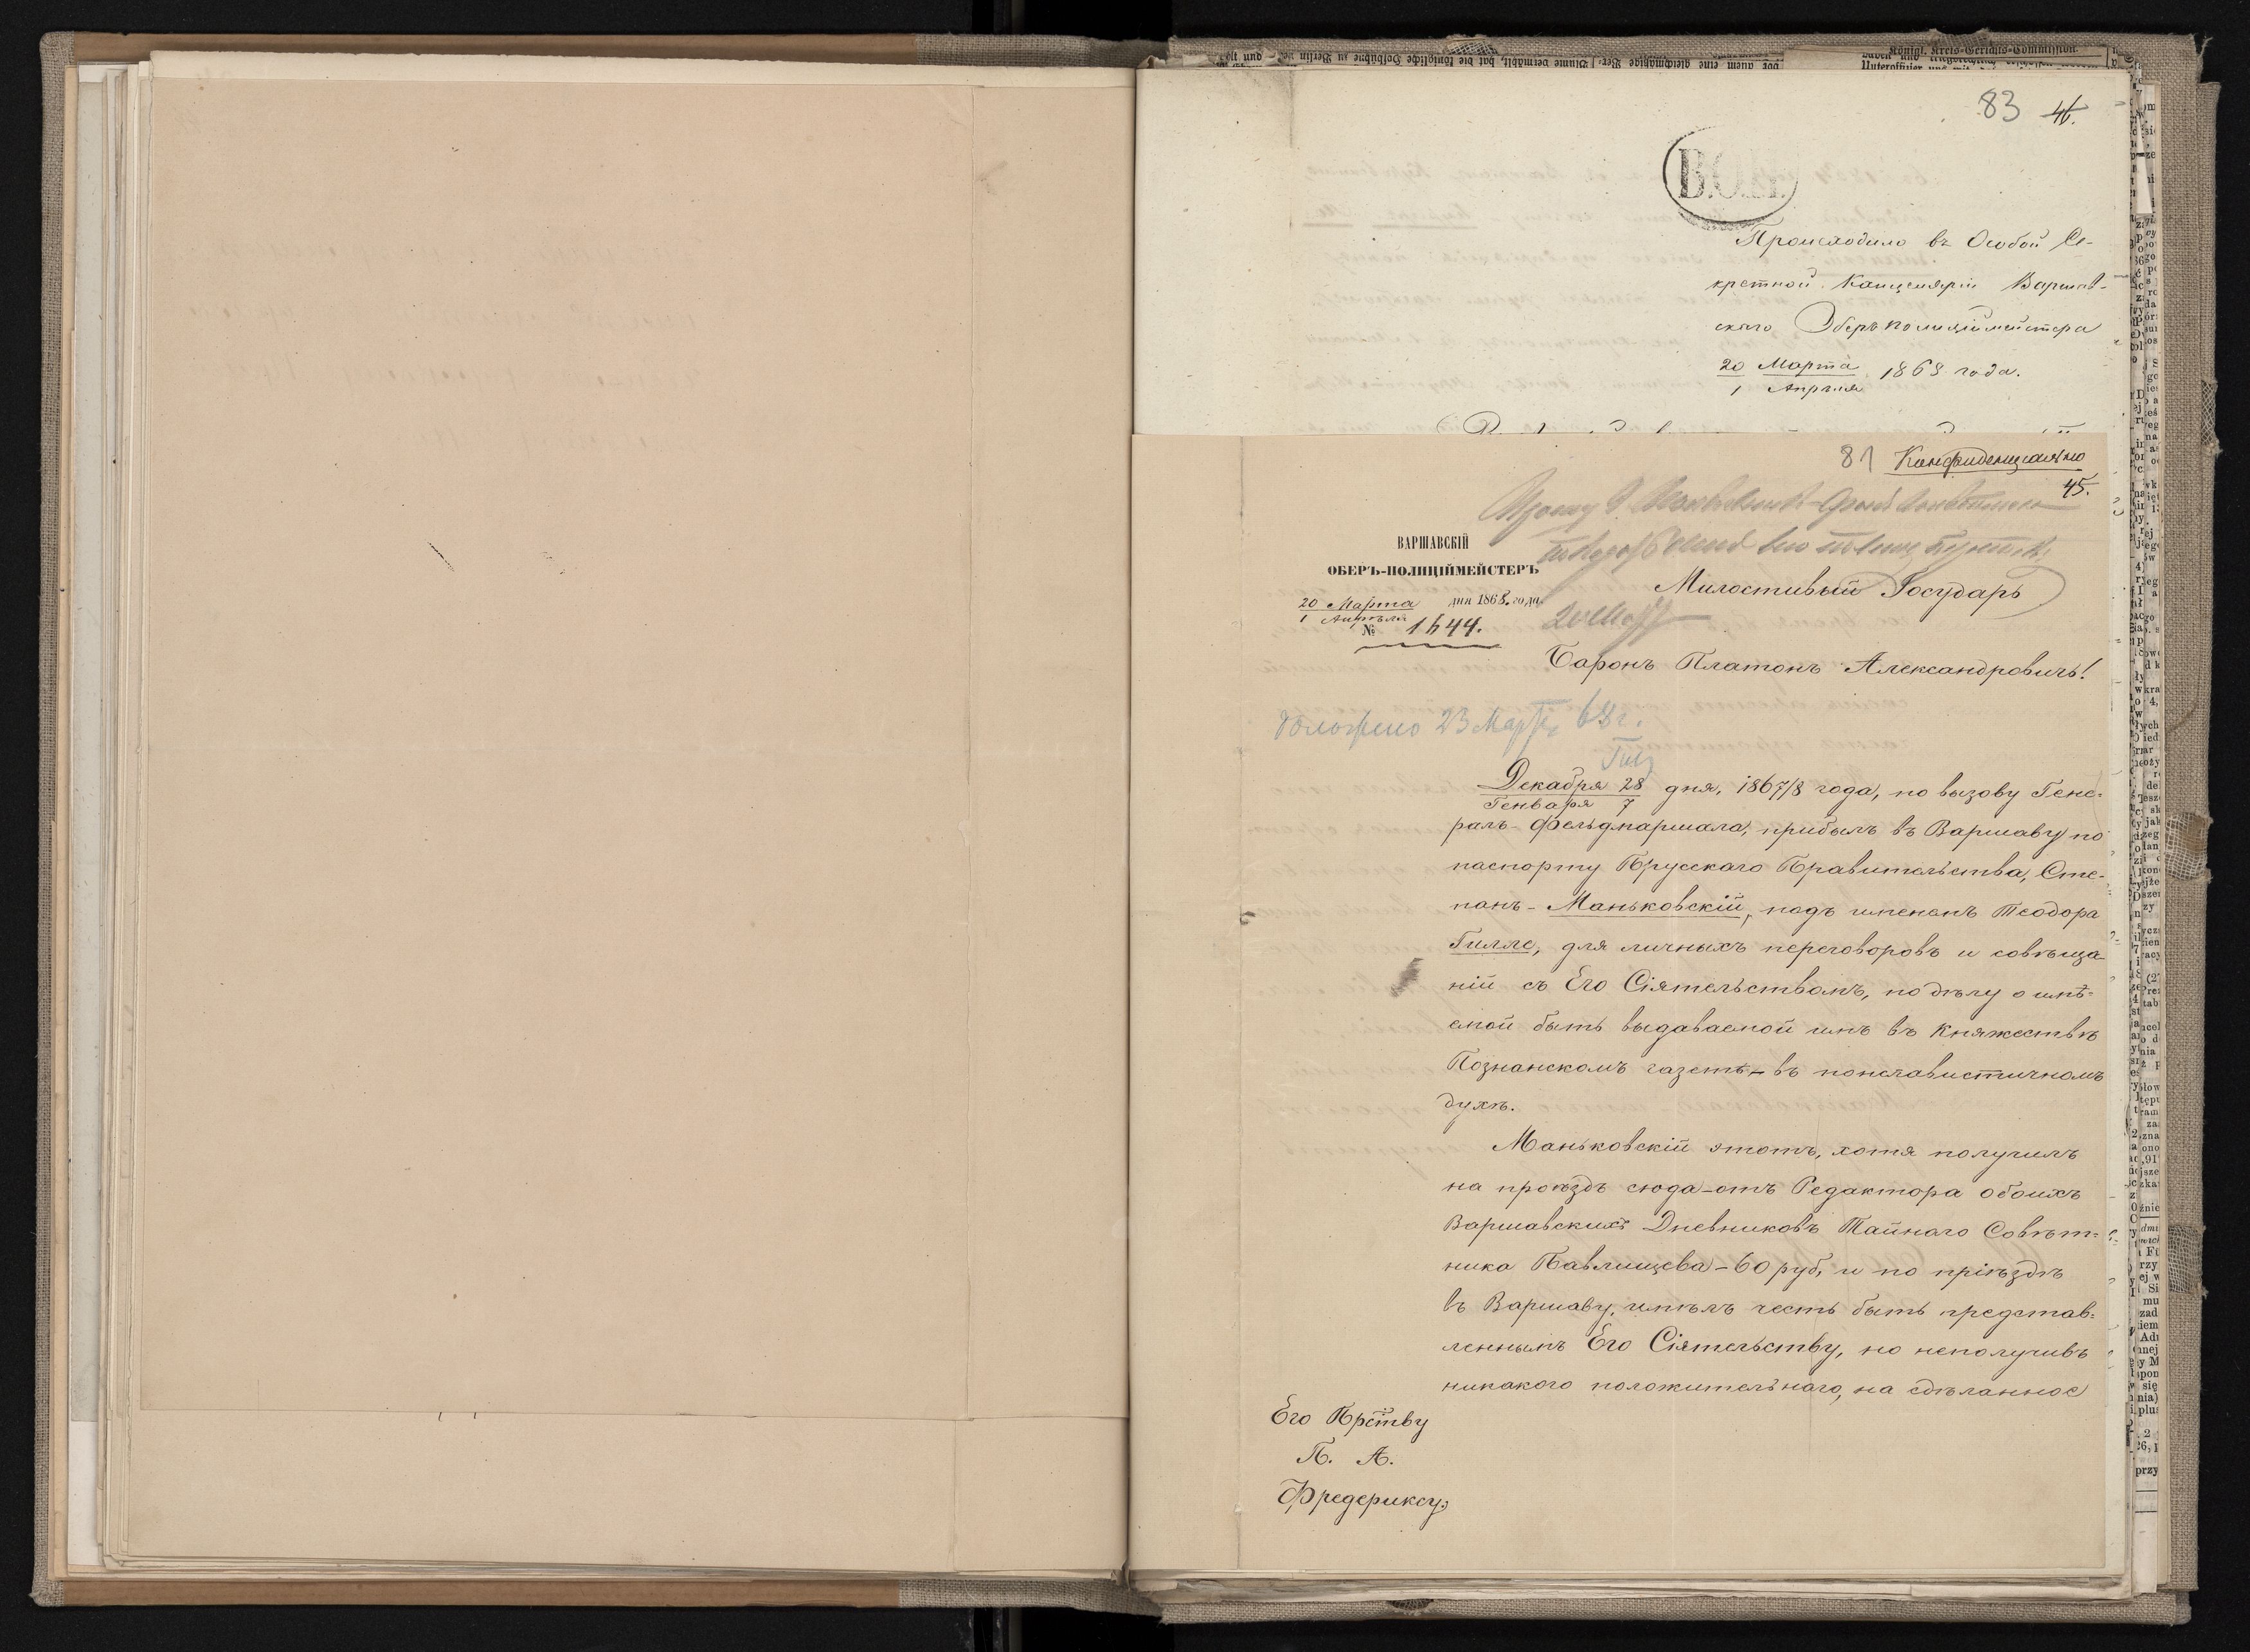 83 46.
В.О.П.
Происходило въ Особой Се-
кретной Канцеляріи Варшав-
скаго Оберъ полиціймейстера
20 Марта
1 Апрѣля 1868 года.
81 Конфиденціально
45.
ВАРШАВСКІЙ
ОБЕРЪ-ПОЛИЦІЙМЕЙСТЕРЪ
20 Марта
1 Апрѣля дня 1868. года.
№ 1644.
Милостивый Государь
Баронъ Платонъ Александровичъ!
Доложено 23 Марта 68 г.
Декабря 28
Генваря 7 дня, 1867/8 года, по вызову Гене-
ралъ-Фельдмаршала, прибылъ въ Варшаву по
паспорту Прусскаго Правительства, Сте-
панъ-Маньковскій, подъ именемъ Теодора
Гилле, для личныхъ переговоровъ и совѣща-
ній съ Его Сіятельствомъ, по дѣлу о имѣ-
емой быть выдаваемой имъ въ Княжествѣ
Познанскомъ газетѣ-въ понславистичномъ
духѣ.
Маньковскій этотъ, хотя получилъ
на проѣздъ сюда-отъ Редактора обоихъ
Варшавскихъ Дневниковъ Тайнаго Совѣт-
ника Павлищева-60 руб, и по пріѣздѣ
въ Варшаву, имѣлъ честь быть представ-
леннымъ Его Сіятельству, но неполучивъ
никакого положительнаго, на сдѣланное
Его Прству
П. А.
Фредериксу